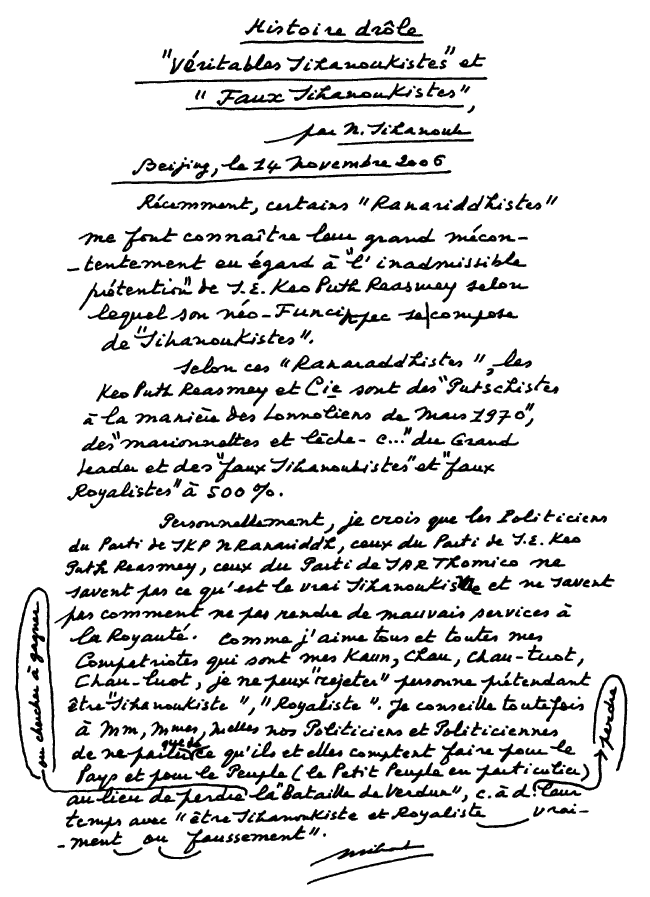 Histoire drôle
"Véritables Sihanoukistes" et
" Faux Sihanoukistes",
par N. Sihanouk
Beijing, le 14 Novembre 2006
Récemment, certains "Ranariddhistes"
me font connaître leur grand mécon-
-tentement eu égard à "l'inadmissible
prétention" de S.E. Keo Puth Reasmey selon
lequel son néo-Funcinpec se compose
de "Sihanoukistes".
Selon ces "Ranaraddhistes", les
Keo Puth Reasmey et Cie sont des "Putschistes
à la manière des Lonnoliens de Mars 1970",
des "marionnettes et lèche-c..." du Grand
Leader et des "faux Sihanoukistes" et "faux
Royalistes" à 500 %.
Personnellement, je crois que les Politiciens
du Parti de SKP N Ranariddh, ceux du Parti de S.E. Keo
Puth Reasmey, ceux du Parti de SAR Thomico ne
savent pas ce qu'est le vrai Sihanoukisme et ne savent
pas comment ne pas rendre de mauvais services à
la Royauté. Comme j'aime tous et toutes mes
Compatriotes qui sont mes Kaun, Chau, Chau-tuot,
Chau-luot, je ne peux "rejeter" personne prétendant
être "Sihanoukiste", "Royaliste". Je conseille toutefois
à MM, Mmes, Melles nos Politiciens et Politiciennes
de ne parler que de ce qu'ils et elles comptent faire pour le
Pays et pour le Peuple (le Petit Peuple en particulier)
au lieu de perdre ou chercher à gagner la "Bataille de Verdun", c. à d. perdre leur
temps avec "être Sihanoukiste et Royaliste vrai-
-ment ou faussement".